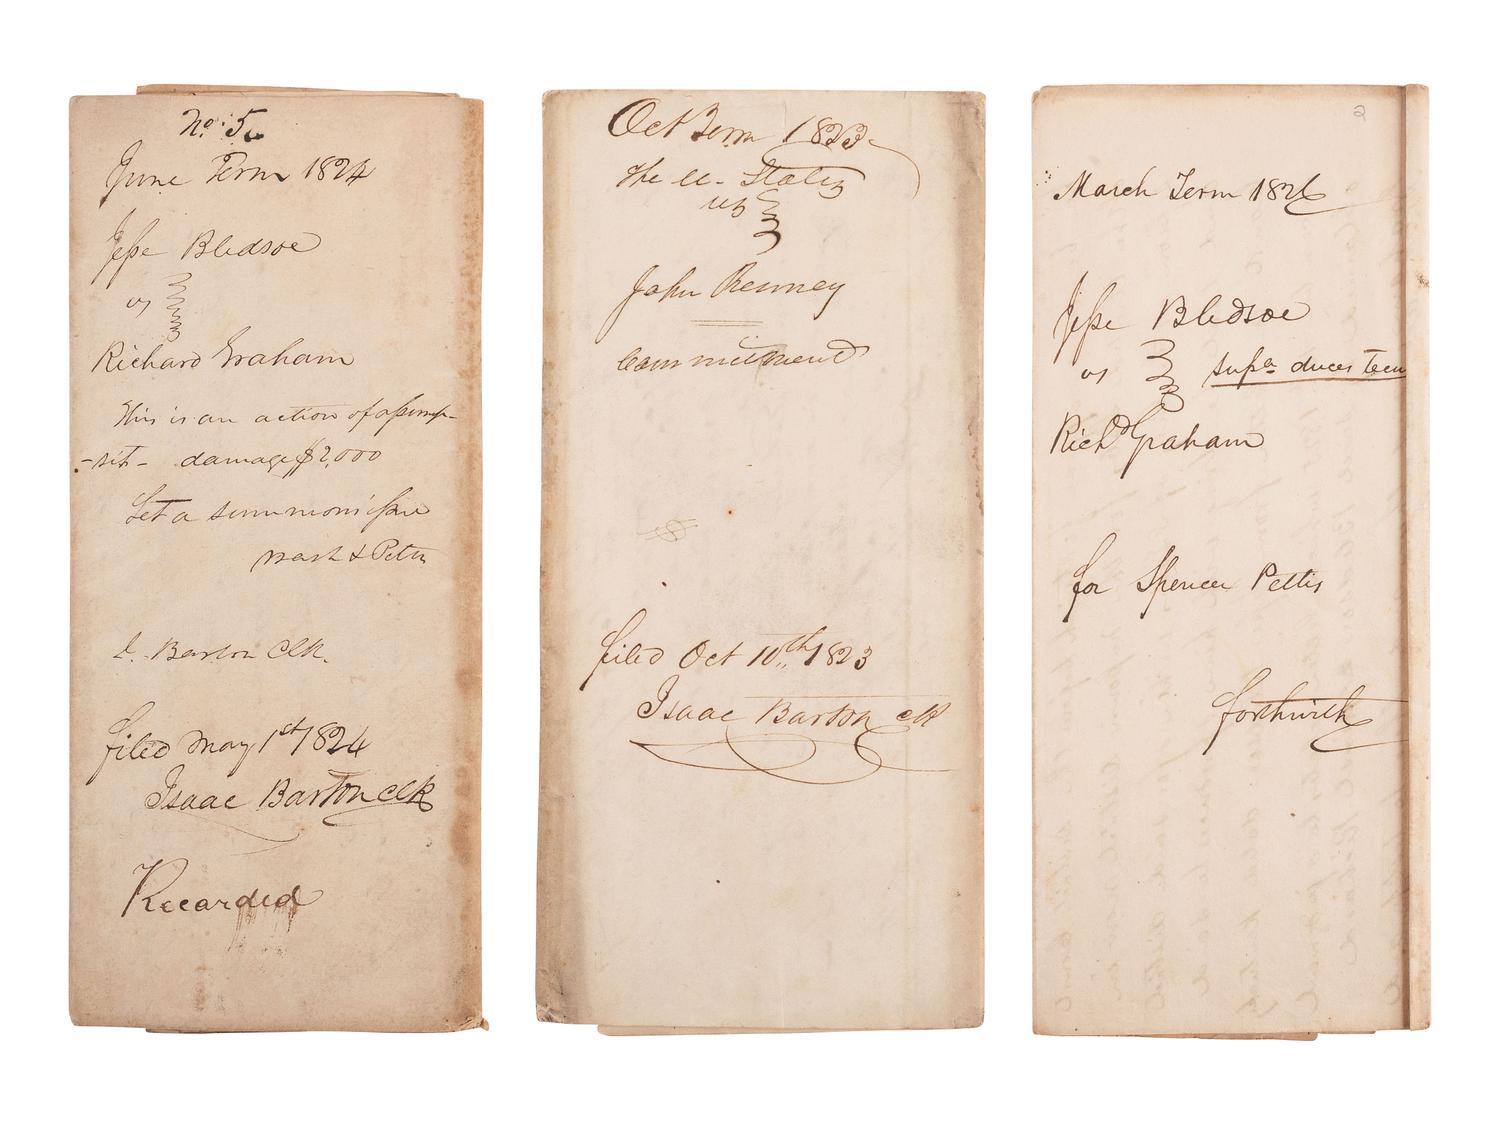 No. 5.
June Term 1824
Jesse Bledsoe
vs
Richard Graham
This is an action of assump-
-sit- damage $2,000
Let a summons issue
Nash & Pettis
I. Barton Clk.
filed May 1st 1824
Isaac Barton clk
Recorded
Oct Term 1823
The U. States
vs
John Renney
Commitment
filed Oct 10th 1823
Isaac Barton clk
2
March Term 1826
Jesse Bledsoe
vs supa duces tecum
Richd Graham
for Spencer Pettis
forthwith